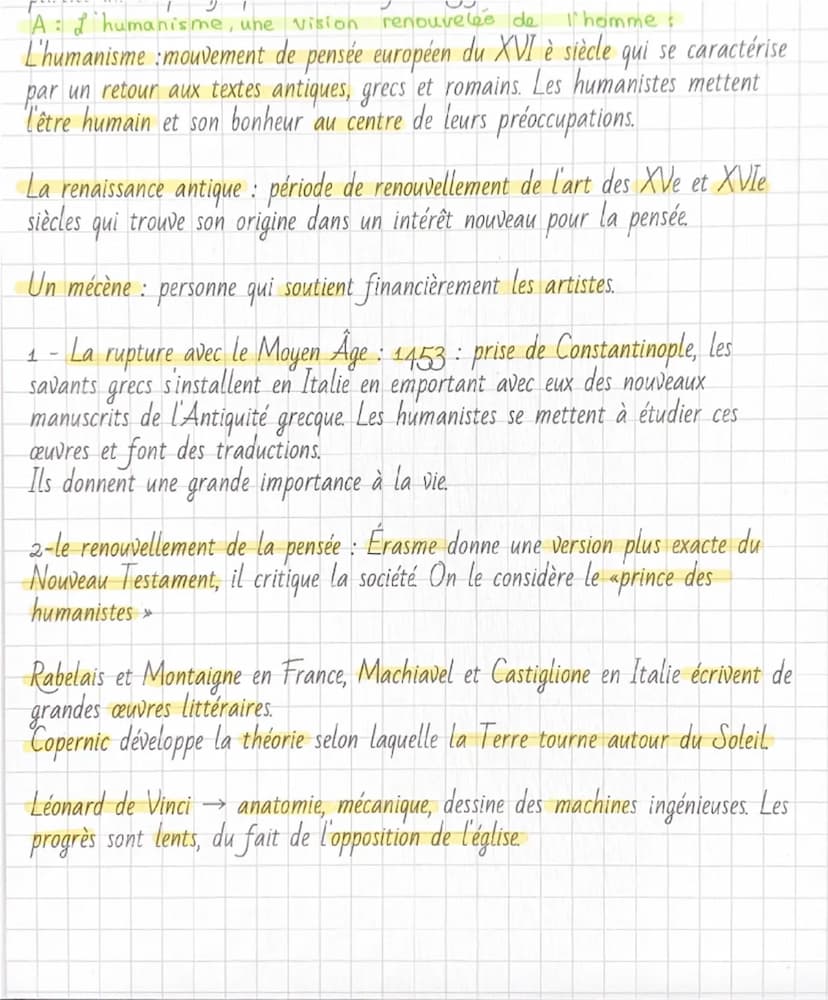 A : L'humanisme, une vision renouvelée de l'homme :
L'humanisme :mouvement de pensée européen du XVI è siècle qui se caractérise
par un retour aux textes antiques, grecs et romains. Les humanistes mettent
l'être humain et son bonheur au centre de leurs préoccupations.
La renaissance antique : période de renouvellement de l'art des XVe et XVIe
siècles qui trouve son origine dans un intérêt nouveau pour la pensée.
Un mécène : personne qui soutient financièrement les artistes.
1 - La rupture avec le Moyen Âge : 1453 : prise de Constantinople, les
savants grecs s'installent en Italie en emportant avec eux des nouveaux
manuscrits de l'Antiquité grecque. Les humanistes se mettent à étudier ces
œuvres et font des traductions.
Ils donnent une grande importance à la vie.
2-le renouvellement de la pensée : Érasme donne une version plus exacte du
Nouveau Testament, il critique la société. On le considère le «prince des
humanistes »
Rabelais et Montaigne en France, Machiavel et Castiglione en Italie écrivent de
grandes œuvres littéraires.
Copernic développe la théorie selon laquelle la Terre tourne autour du Soleil.
Léonard de Vinci → anatomie, mécanique, dessine des machines ingénieuses. Les
progrès sont lents, du fait de l'opposition de l'église.